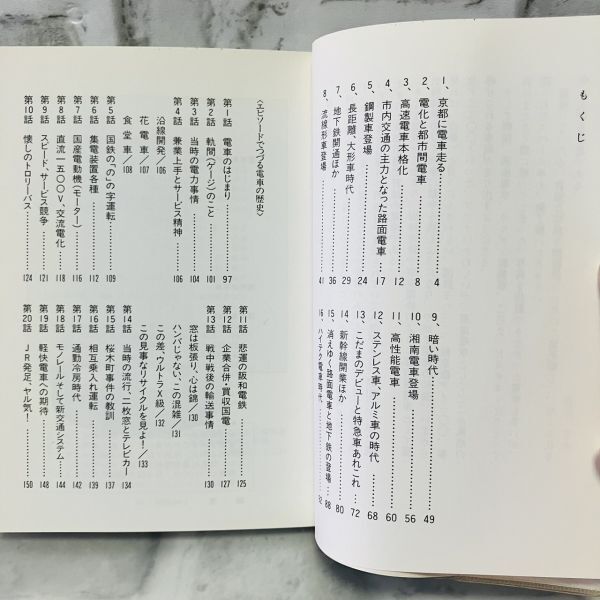 もくじ
1、京都に電車走る……4
2、電化と都市間電車……8
3、高速電車本格化……12
4、市内交通の主力となった路面電車……17
5、鋼製車登場……24
6、長距離、大形車時代……29
7、地下鉄開通ほか……36
8、流線形車登場……41
9、暗い時代……49
10、湘南電車登場……56
11、高性能電車……60
12、ステンレス車、アルミ車の時代……68
13、こだまのデビューと特急車あれこれ……72
14、新幹線開業ほか……80
15、消えゆく路面電車と地下鉄の登場……88
16、ハイテク電車時代……
〈エピソードでつづる電車の歴史〉
第1話 電車のはじまり……97
第2話 軌間(ゲージ)のこと……101
第3話 当時の電力事情……104
第4話 兼業上手とサービス精神……106
沿線開発/106
花電車/107
食堂車/108
第5話 国鉄の「の」の字運転……109
第6話 集電装置各種……112
第7話 国産電動機(モーター)……116
第8話 直流一五〇〇V、交流電化……118
第9話 スピード、サービス競争……121
第10話 懐しのトロリーバス……124
第11話 悲運の阪和電鉄……125
第12話 企業合併・買収国電……127
第13話 戦中戦後の輸送事情……130
窓は板張り、心は錦/130
ハンパじゃない、この混雑/131
この差、ウルトラX級/132
この見事なリサイクルを見よ!/133
第14話 当時の流行、二枚窓とテレビカー……134
第15話 桜木町事件の教訓……137
第16話 相互乗入れ運転……139
第17話 通勤冷房時代……142
第18話 モノレールそして新交通システム……144
第19話 軽快電車への期待……148
第20話 JR発足、ヤル気!……150